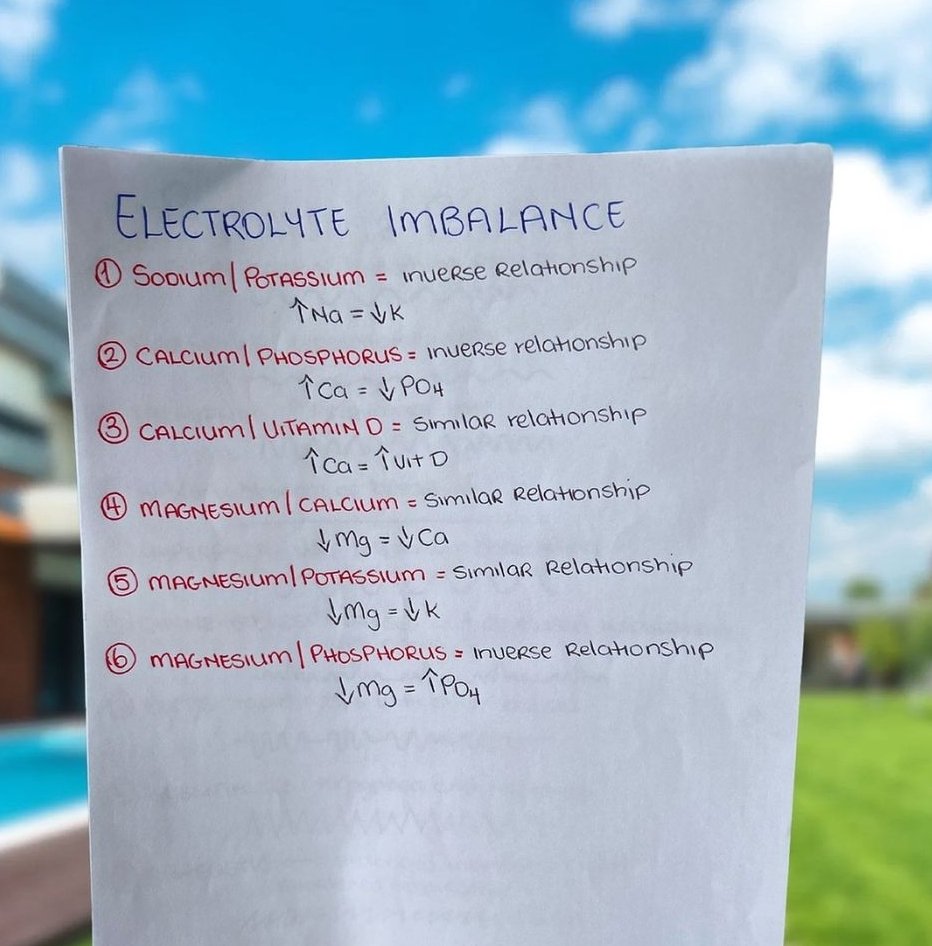 ELECTROLYTE IMBALANCE
① SODIUM/POTASSIUM = INVERSE RELATIONSHIP
↑Na = ↓K
② CALCIUM/PHOSPHORUS = INVERSE RELATIONSHIP
↑Ca = ↓PO4
③ CALCIUM/VITAMIN D = SIMILAR RELATIONSHIP
↑Ca = ↑Vit D
④ MAGNESIUM/CALCIUM = SIMILAR RELATIONSHIP
↓Mg = ↓Ca
⑤ MAGNESIUM/POTASSIUM = SIMILAR RELATIONSHIP
↓Mg = ↓K
⑥ MAGNESIUM/PHOSPHORUS = INVERSE RELATIONSHIP
↓Mg = ↑PO4